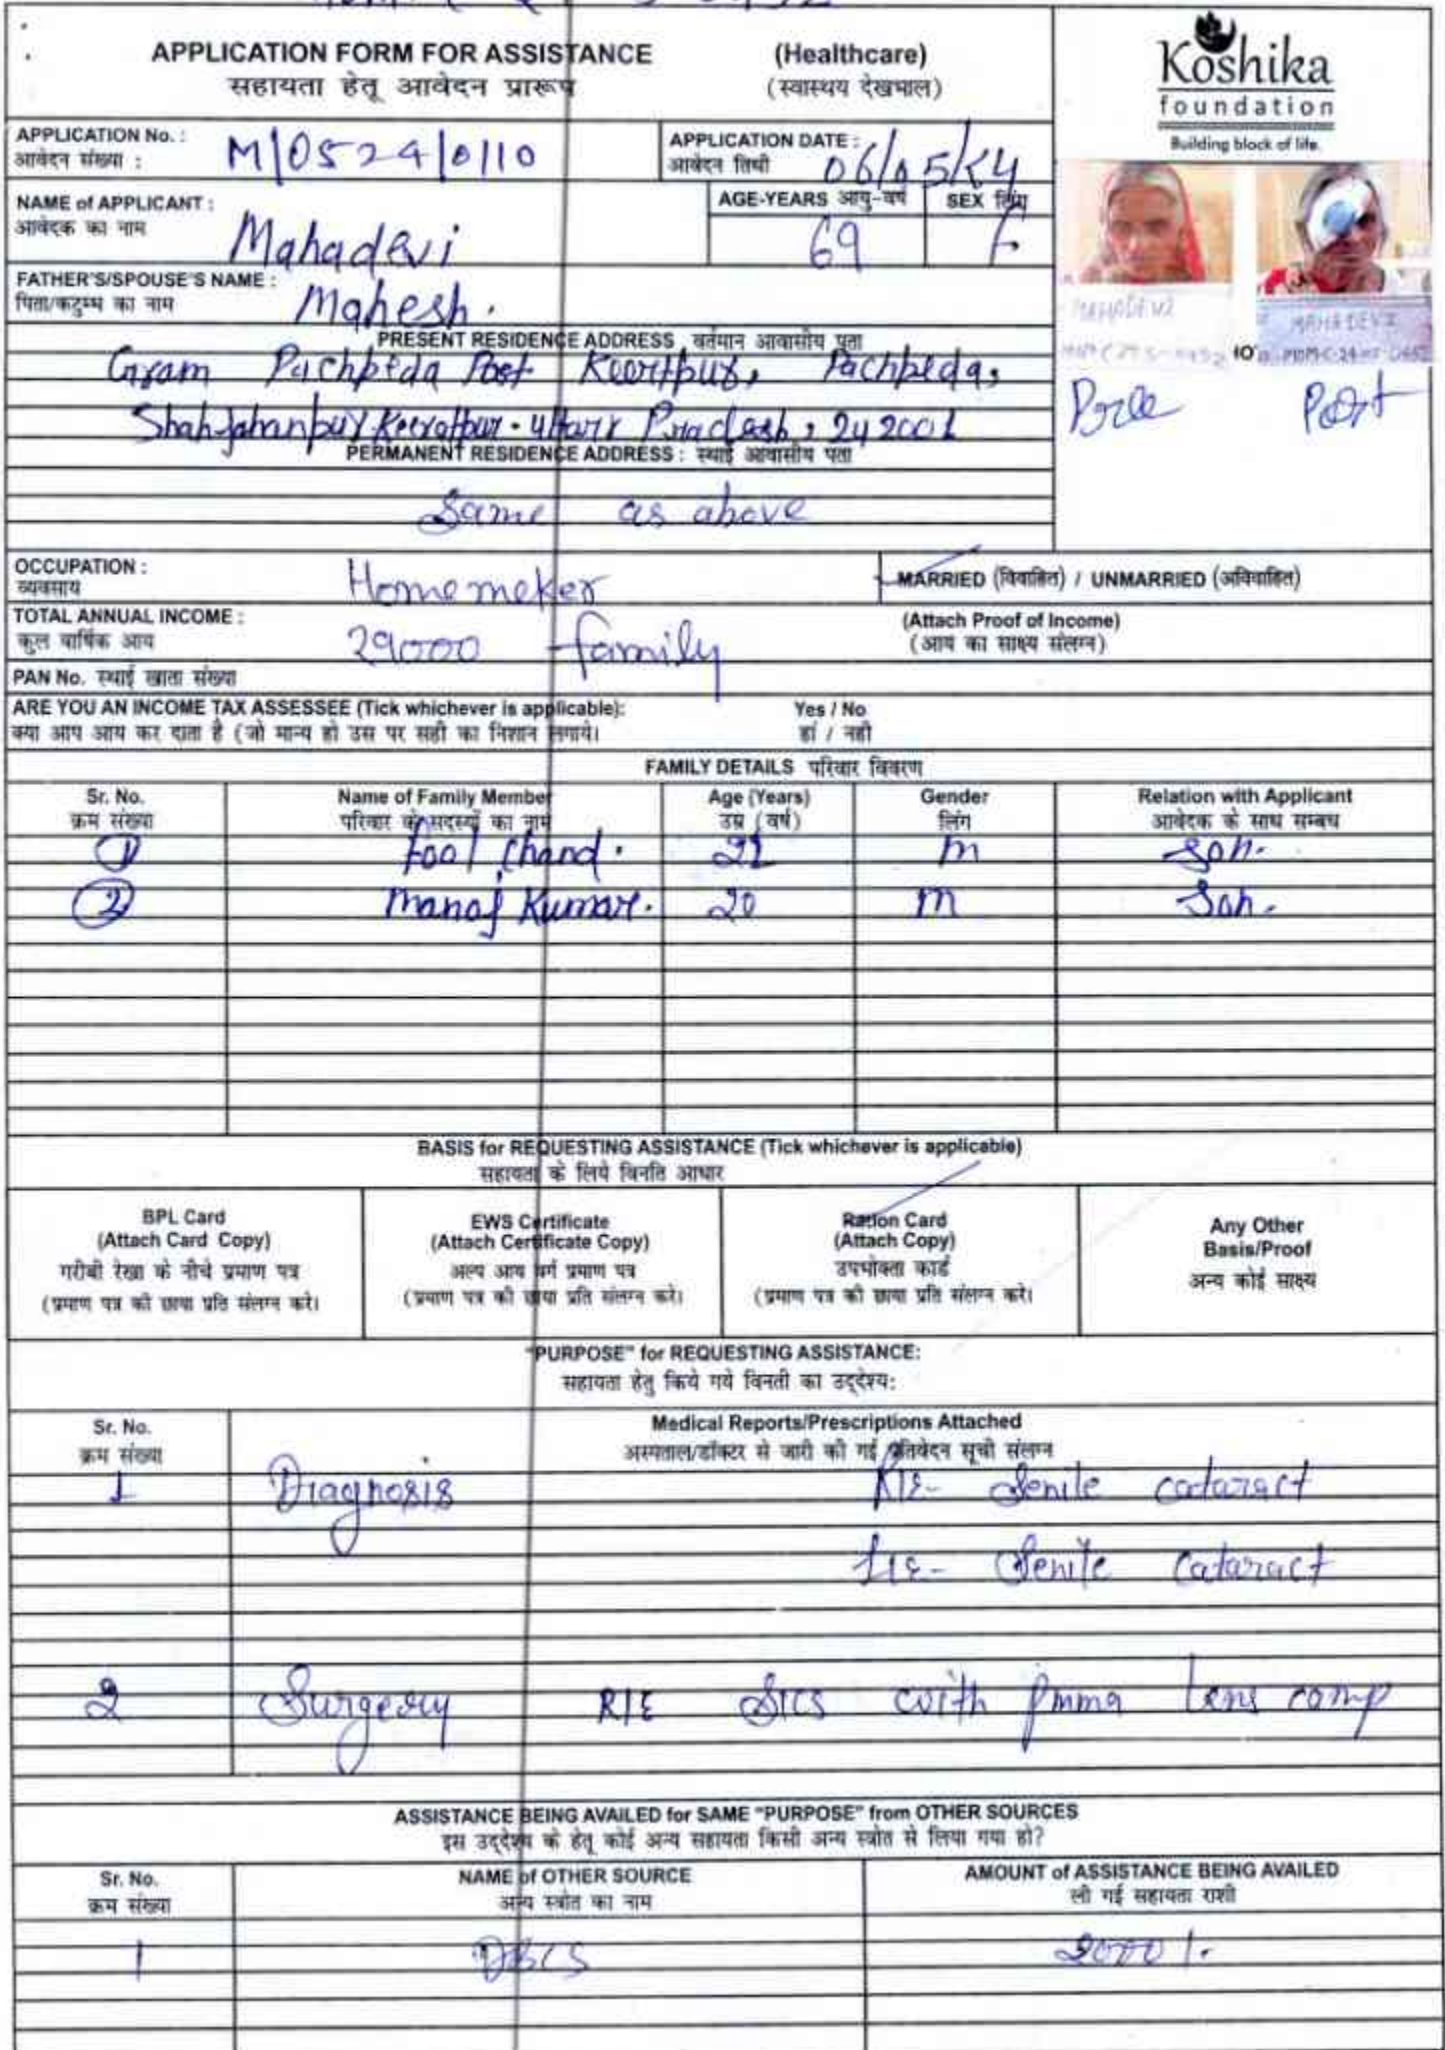 APPLICATION FORM FOR ASSISTANCE (Healthcare)
सहायता हेतू आवेदन प्रारूप (स्वास्थय देखभाल)
Koshika
foundation
Building block of life.
APPLICATION No. :
आवेदन संख्या :
M/0524/0110
APPLICATION DATE :
आवेदन तिथी
06/05/24
NAME of APPLICANT :
आवेदक का नाम
Mahadevi
AGE-YEARS आयु-वर्ष
69
SEX लिंग
F
FATHER'S/SPOUSE'S NAME :
पिता/कटुम्ब का नाम
Mahesh.
MAHADEVI
MAHADEVI
PRESENT RESIDENCE ADDRESS वर्तमान आवासीय पता
Gram Pachpeda Post Keeritpur, Pachpeda,
Shahjahanpur Keeratpur. Uttar Pradesh, 242001
Pree Post
PERMANENT RESIDENCE ADDRESS : स्थाई आवासीय पता
Same as above
OCCUPATION :
व्यवसाय
Homemeker
MARRIED (विवाहित) / UNMARRIED (अविवाहित)
TOTAL ANNUAL INCOME :
कुल वार्षिक आय
29000 family
(Attach Proof of Income)
(आय का साक्ष्य संलग्न)
PAN No. स्थाई खाता संख्या
ARE YOU AN INCOME TAX ASSESSEE (Tick whichever is applicable): Yes / No
क्या आप आय कर दाता है (जो मान्य हो उस पर सही का निशान लगाये। हां / नही
FAMILY DETAILS परिवार विवरण
Sr. No. Name of Family Member Age (Years) Gender Relation with Applicant
क्रम संख्या परिवार के सदस्यों का नाम उम्र (वर्ष) लिंग आवेदक के साथ सम्बध
1 Fool Chand. 22 M Son.
2 Manoj Kumar. 20 M Son.
BASIS for REQUESTING ASSISTANCE (Tick whichever is applicable)
सहायता के लिये विनति आधार
BPL Card
(Attach Card Copy)
गरीबी रेखा के नीचे प्रमाण पत्र
(प्रमाण पत्र की छाया प्रति संलग्न करे।
EWS Certificate
(Attach Certificate Copy)
अल्प आय वर्ग प्रमाण पत्र
(प्रमाण पत्र की छाया प्रति संलग्न करे।
Ration Card
(Attach Copy)
उपभोक्ता कार्ड
(प्रमाण पत्र की छाया प्रति संलग्न करे।
Any Other
Basis/Proof
अन्य कोई साक्ष्य
"PURPOSE" for REQUESTING ASSISTANCE:
सहायता हेतु किये गये विनती का उद्देश्य:
Sr. No. Medical Reports/Prescriptions Attached
क्रम संख्या अस्पताल/डॉक्टर से जारी की गई प्रतिवेदन सूची संलग्न
1 Diagnosis R/E- Senile cataract
L/E- Senile Cataract
2 Surgery R/E SICS with pmma lens comp
ASSISTANCE BEING AVAILED for SAME "PURPOSE" from OTHER SOURCES
इस उद्देश्य के हेतू कोई अन्य सहायता किसी अन्य स्त्रोत से लिया गया हो?
Sr. No. NAME of OTHER SOURCE AMOUNT of ASSISTANCE BEING AVAILED
क्रम संख्या अन्य स्त्रोत का नाम ली गई सहायता राशी
1 DBCS 2000/-